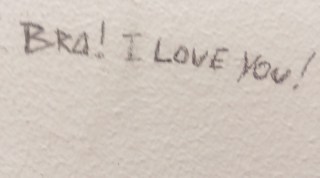 BRA! I LOVE YOU!